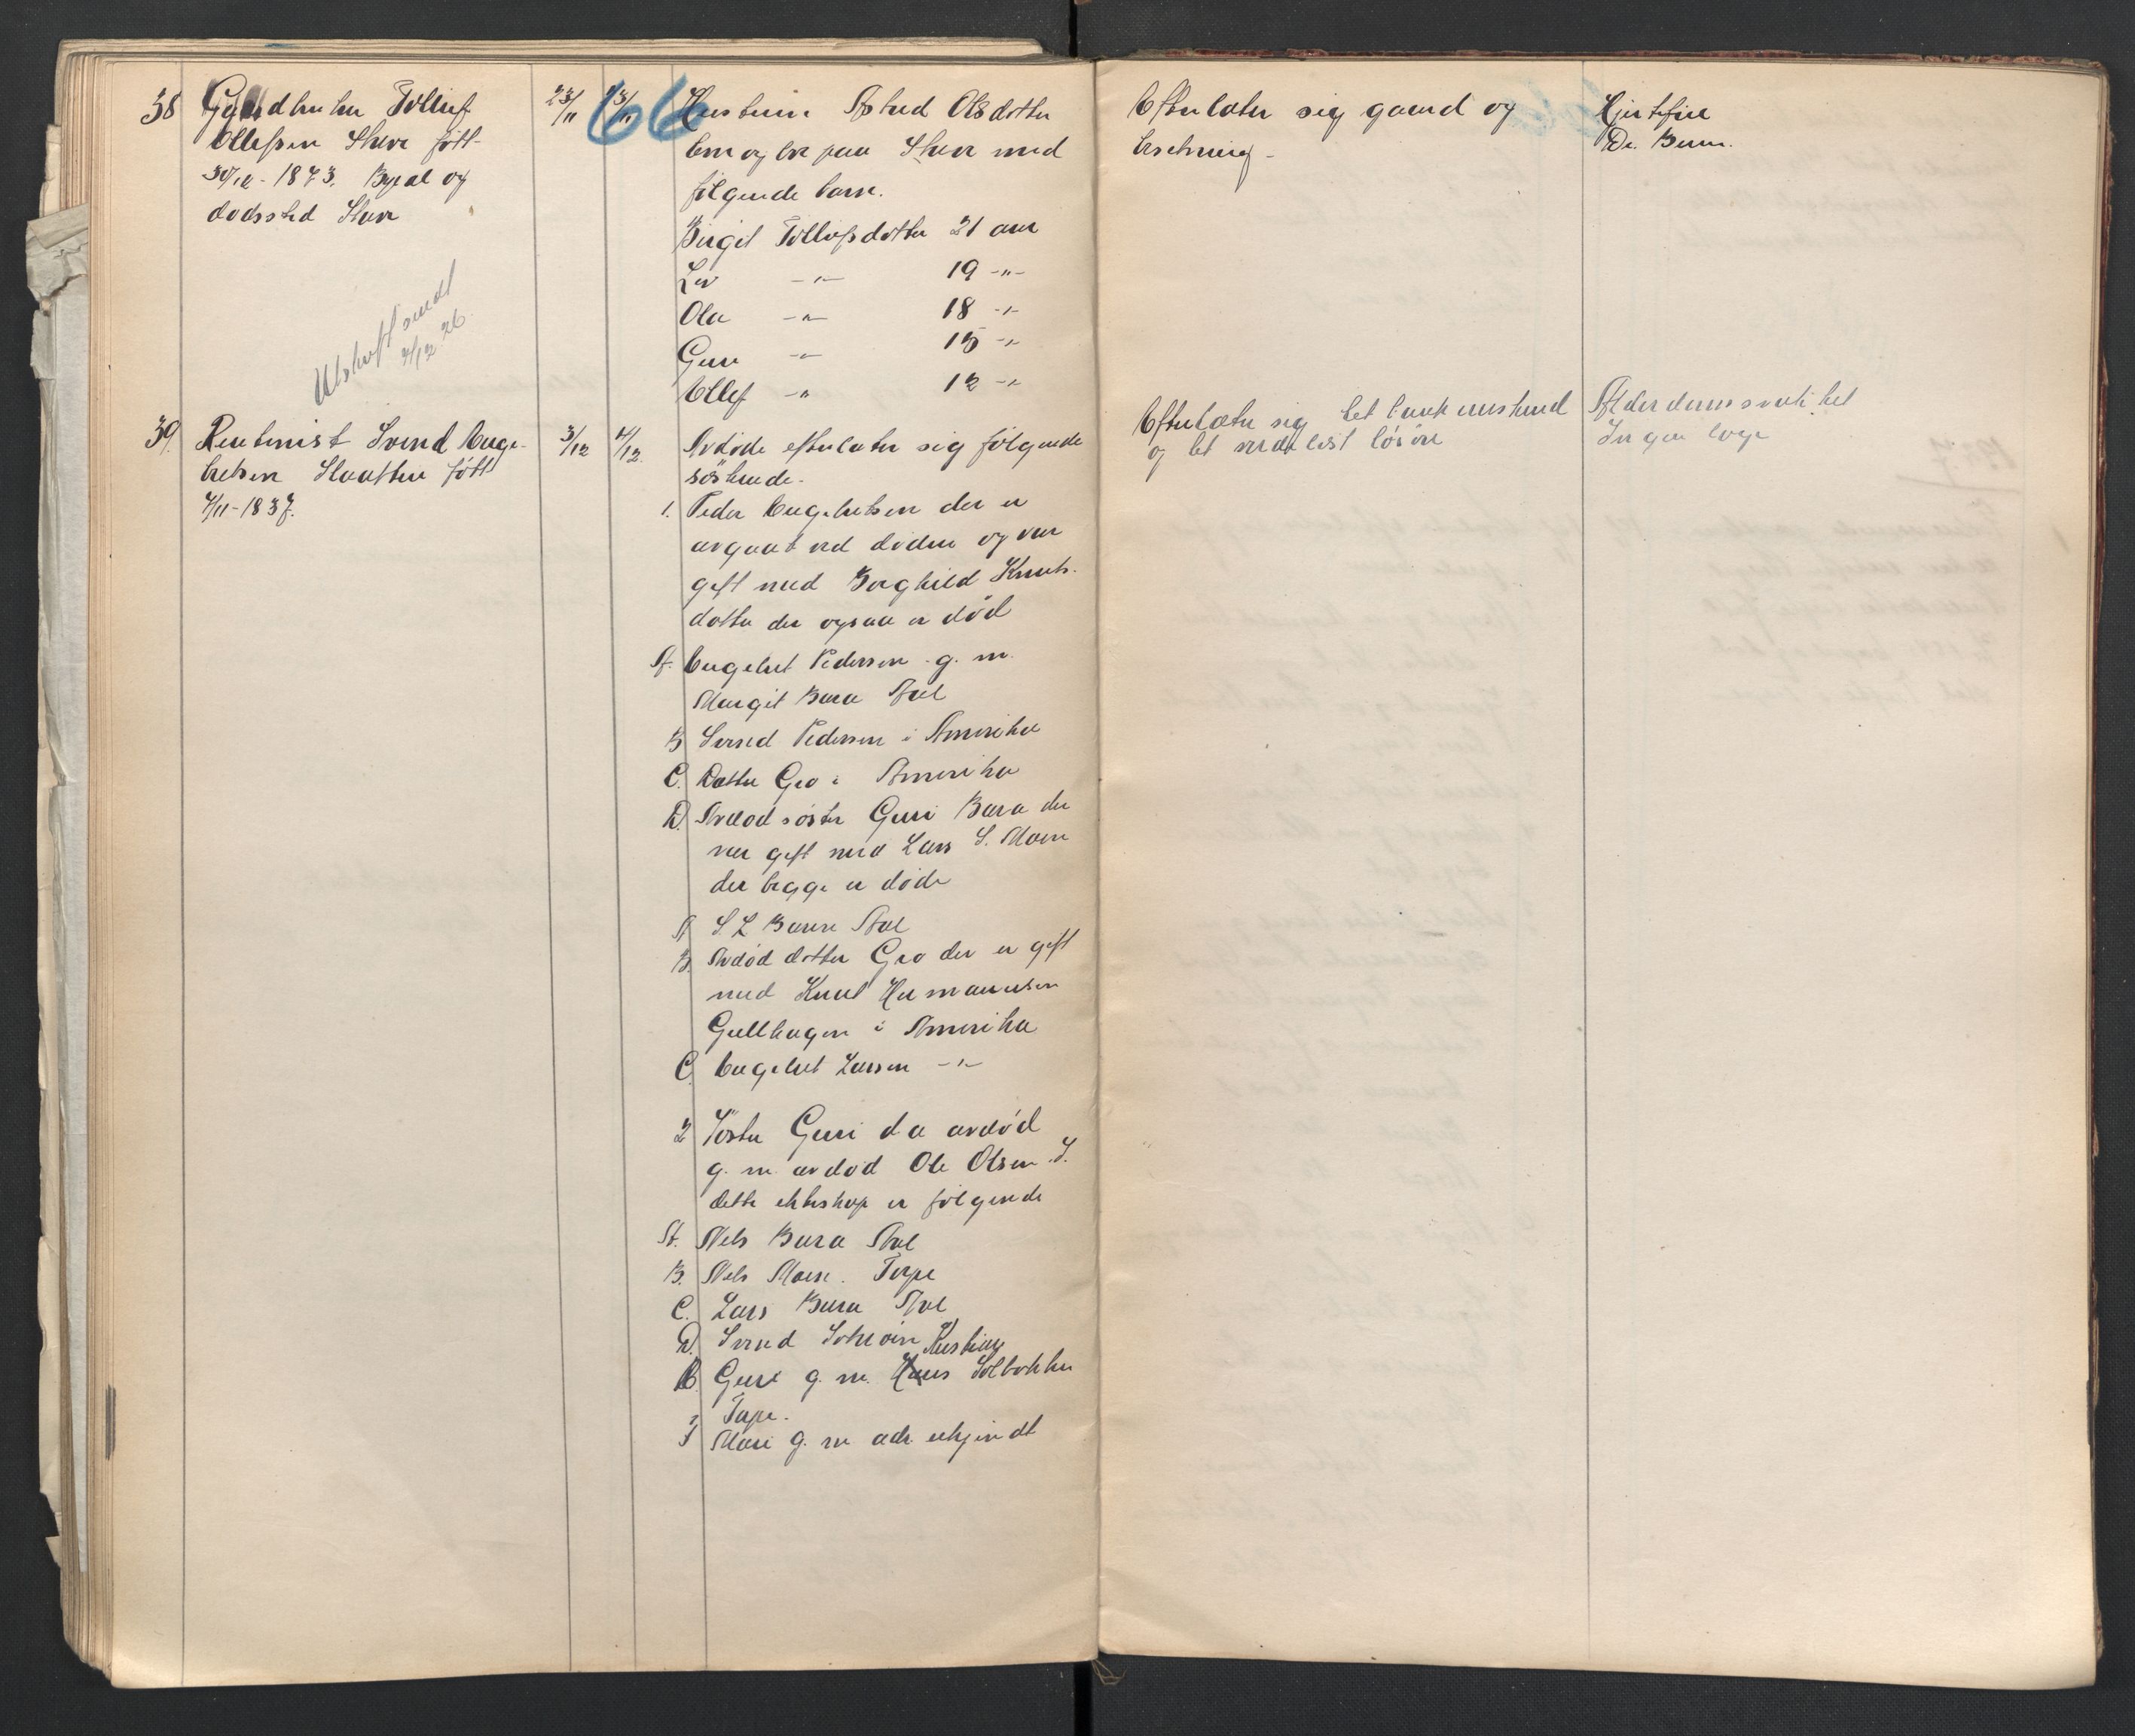 38 Gaardbruker Tollef
Ellefsen Skere født
30/12 - 1873. Bopæl og
dødssted Skere
Utskrift sendt
4/12 26
23/11
23/11
66
Hustruen Astrid Olsdotter
bor og lever paa Skere med
følgende barn.
Birgit Tollefsdotter 21 aar
Liv -"- 19 -"-
Ola -"- 18 -"-
Guri -"- 15 -"-
Ellef -"- 12 -"-
Efterlater sig gaard og
besetning -
Hjertefeil
Dr.
39. Rentenist Svend Enge-
bretsen Slaatten født
4/11 - 1837.
3/12
4/12.
Avdøde efterlater sig følgende
søskende.
1. Peder Engebretsen der er
avgaat ved døden og var
gift med Borghild Knuts-
dotter der ogsaa er død
A. Engebret Pedersen g. m.
Margit Bara Aal
B Svend Pedersen i Amerika
C. Datter Gro i Amerika
D. Avdød søster Guri Bara der
var gift med Lars S. Moen
der begge er døde
A S. L Baren Aal
B. Avdød dotter Gro der er gift
med Knut Hermansen
Gullhagen i Amerika
C. Engebret Larsen -"-
2 Søster Guri da avdød
g. m. avdød Ole Olsen. I
dette ekteskap er følgende
A. Nels Bara Aal
B. Nels Moen. Torpe
C. Lars Bara Aal
D. Svend
E. Guri g. m. Hans Kristian Solbakken
Torpe.
F Mari g. m adr. ukjendt
Efterlater sig bet bankinnskud
og bet verdiløst løsøre
Alderdomssvakhet
Ingen læge